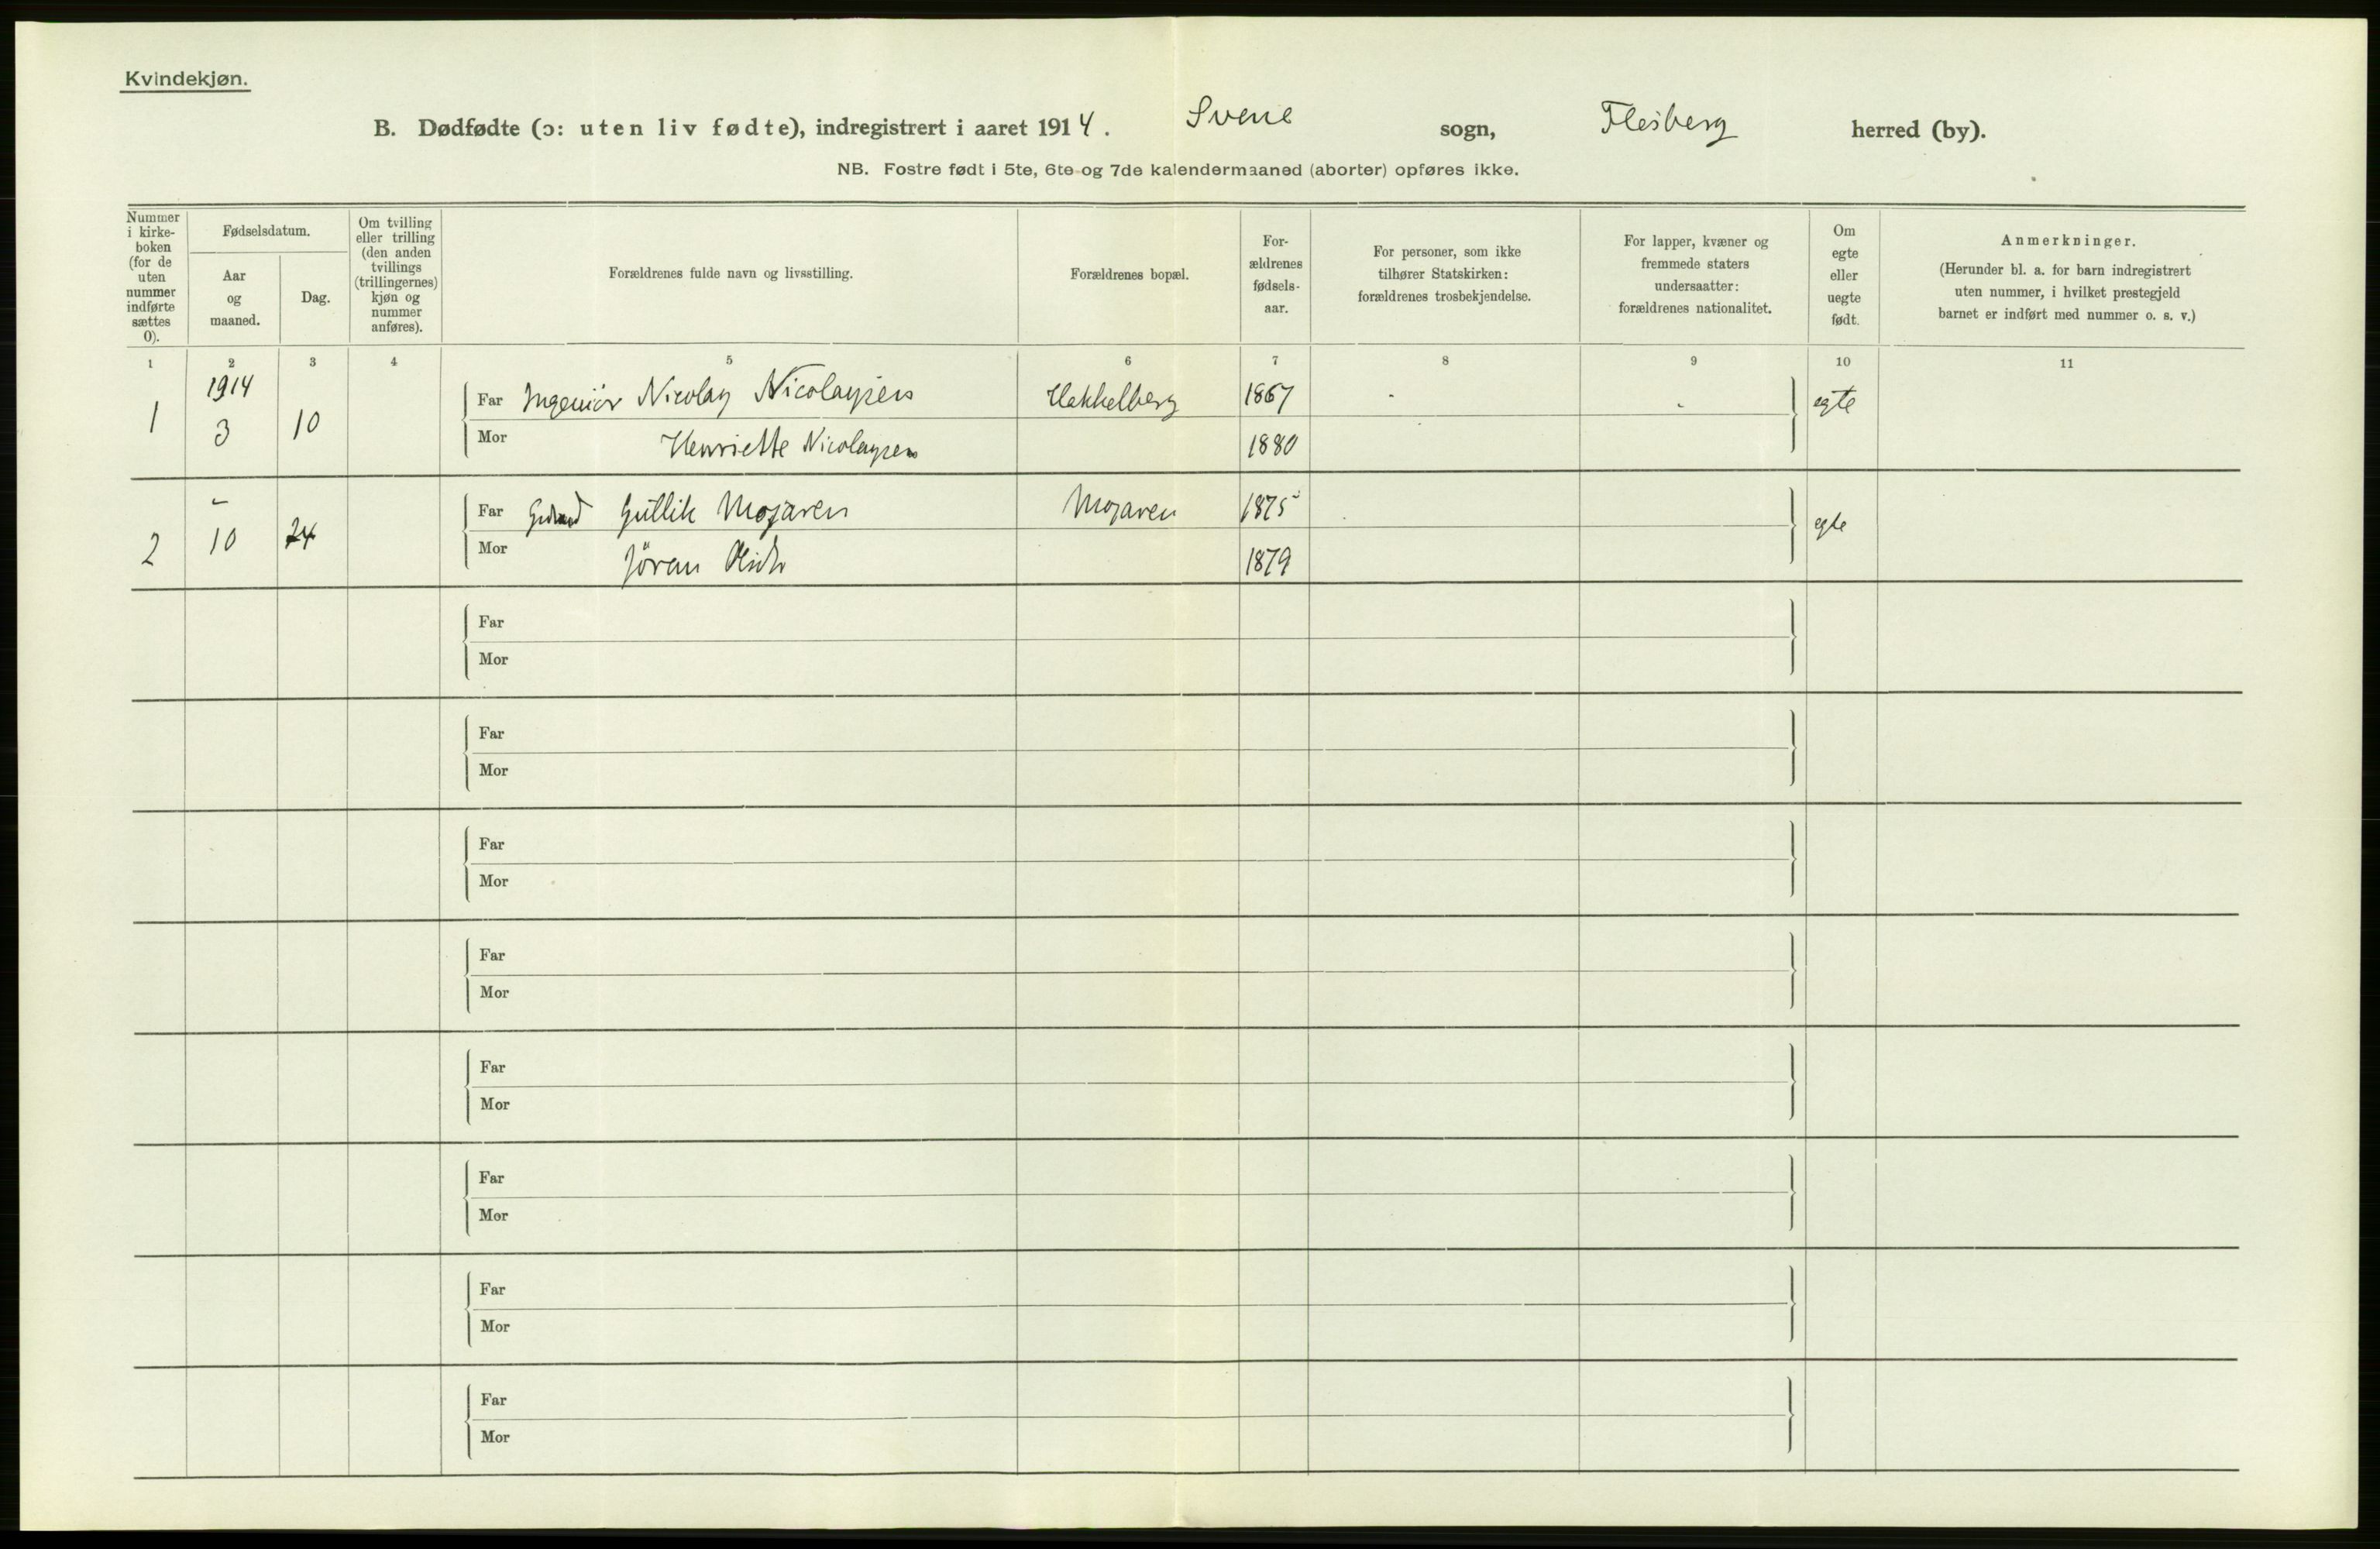 Kvindekjøn.
B. Dødfødte (ɔ: uten liv fødte), indregistrert i aaret 1914. Svene sogn, Flesberg herred (by).
NB. Fostre født i 5te, 6te og 7de kalendermaaned (aborter) opføres ikke.
Nummer i kirke- boken (for de uten nummer indførte sættes 0).
Fødselsdatum.
Aar og maaned.
Dag.
Om tvilling eller trilling (den anden tvillings (trillingernes) kjøn og nummer anføres).
Forældrenes fulde navn og livsstilling.
Forældrenes bopæl.
For- ældrenes fødsels- aar.
For personer, som ikke tilhører Statskirken: forældrenes trosbekjendelse.
For lapper, kvæner og fremmede staters undersaatter: forældrenes nationalitet.
Om egte eller uegte født.
Anmerkninger.
(Herunder bl. a. for barn indregistrert uten nummer, i hvilket prestegjeld barnet er indført med nummer o. s. v.)
1 2 3 4 5 6 7 8 9 10 11
1914
1 3 10 Far Ingeniör Nicolay Nicolaysen Hakkelberg 1867 - - egte
Mor Henriette Nicolaysen 1880
2 - 10 24 Far Gullik Mojaren Mojaren 1875 egte
Mor Jöran 1879
Far
Mor
Far
Mor
Far
Mor
Far
Mor
Far
Mor
Far
Mor
Far
Mor
Far
Mor